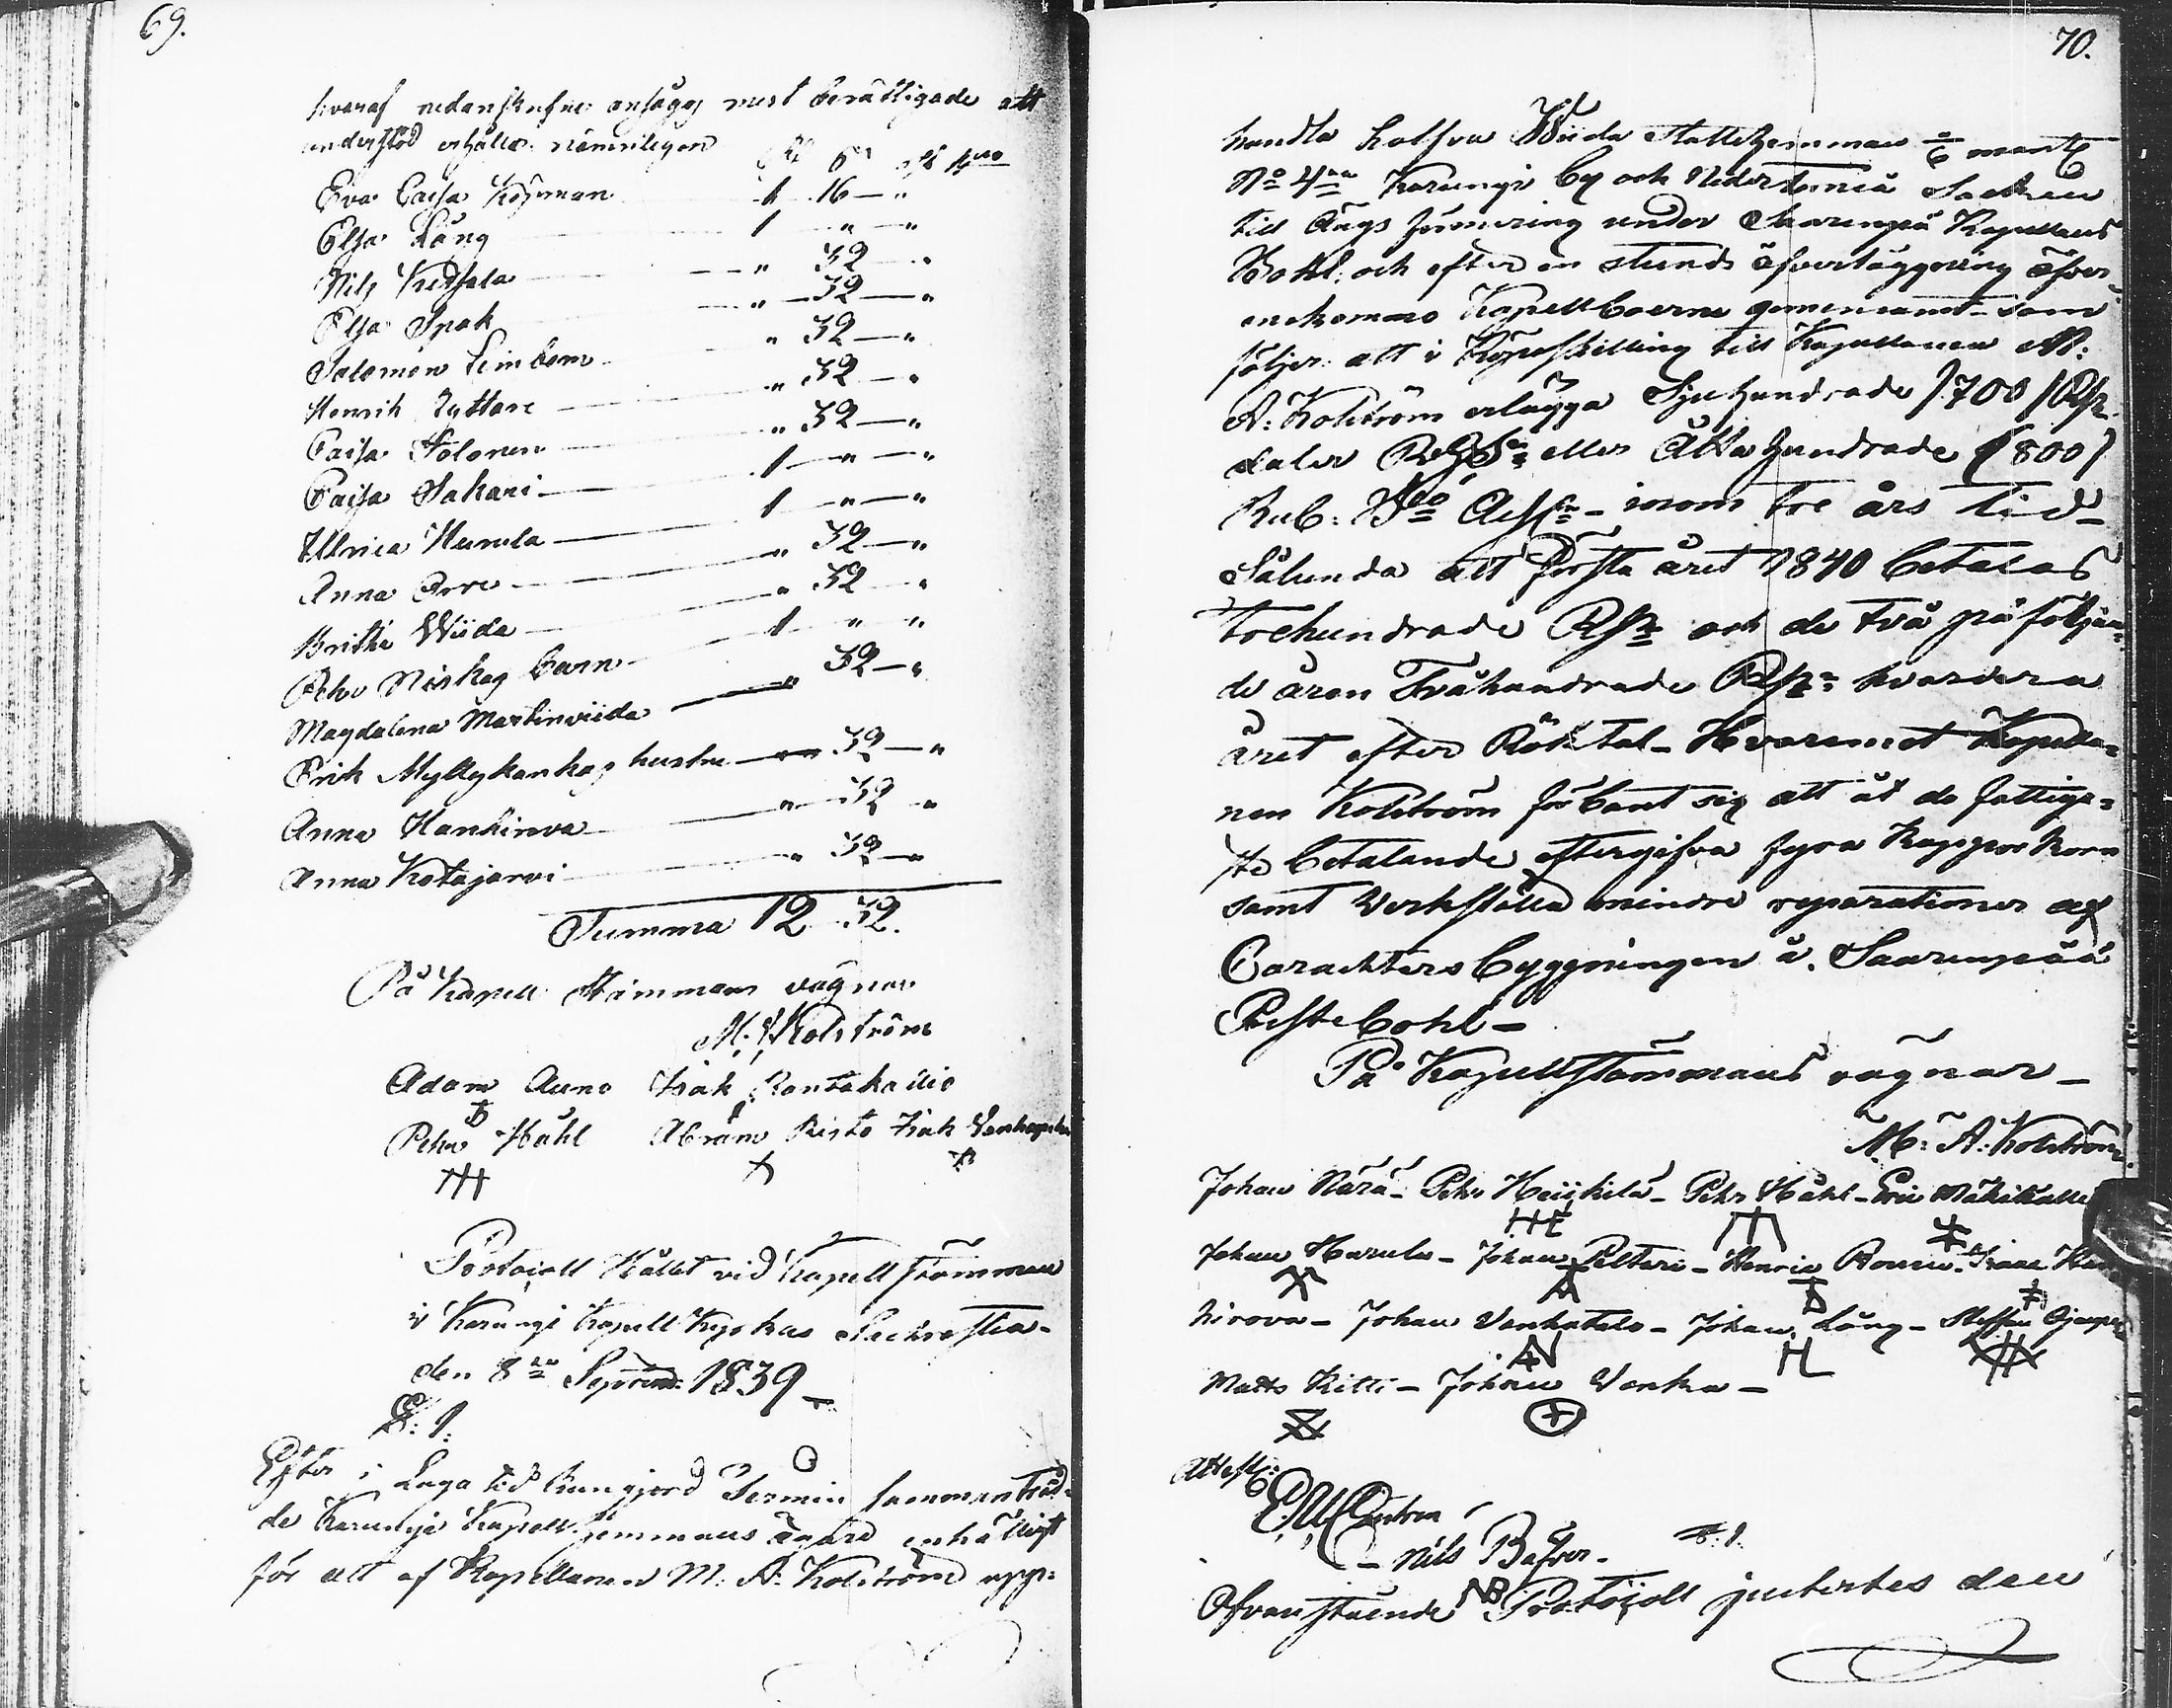 69.
hvaraf nedanskrifne ansågos mest berättigade att
understöd erhålla nämnligen
Eva Caisa Köjman 1 16 — "
Elsa Lång 1 " — "
Nils Kuhala — " 32 — "
Elsa Spak — " — 32 — "
Salomon Limbom " 32 — "
Henrik Ryttare — " 32 — "
Caisa Tolonen — " 32 — "
Caisa Sakari — 1 — " — "
Ulrica Hurula — 1 " — "
Anna Orre — " 32 — "
Britha Wiida — " 32 — "
Pehr Niskas barn — 1 " "
Magdalena Martinviida — " 32 — "
Erik Myllykankas hustru — " 32 — "
Anna Kankirova — " — 32 — "
Anna Kotajärvi — " 32 — "
Summa 12 32.
På Kapell Stämmans vägnar
M. A. Kolström
Adam Auno Isak Rantakallio
Pehr Håhl Abram Risto Isak
Protocoll Hållet vid Kapell stämman
i Karungi Kapell Kyrkas Sackristia
den 8de Septemb: 1839 —
S: 1.
Efter i Laga tid kungjord Termin sammanträd-
de Karungi Kapell hemmans ägare enhälligt
för att af Kapellanen M: A. Kolström upp-
70.
handla halfva Wiida Skattehemman mantl
No 4ra Karungi by och Neder Torneå Socken
till Ängs förmering under Saarenpää Kapellans
Bohl. och efter en stunds öfverläggning öfver-
enskommo Kapellboerne gemensamt som
följer: att i Köpeskilling till Kapellanen M:
A: Kolström erlägga Sjuhundrade /:700:/ Riks
daler RgS eller Åtta hundrade (800)
Rub: Bco Ass - inom tre års tid -
Sålunda att första året 1840 betalas
trehundrade Rdr och de två påföljan-
de åren Tvåhundrade Rdr hvardera
året efter Röktal - Hvaremot Kapella-
nen Kolström förbant sig att åt de fattiga-
ste betalande eftergifva fyra Kappor Korn
samt Verkställa mindre reparationer af
Carachters byggningen å Saarenpää
Prestbohl —
På Kapellstämmans vägnar —
M: A: Kolström.
Johan Närä - Pehr Heiskilä - Pehr Håhl - Eric Mäkikallio
Johan Harula - Johan Peltari - Henric Isaac Kan
kirova - Johan Vanhatalo - Johan Lång - Steffan
Matts Kitti - Johan Vanha —
Attest:
Nils Bäfver.
S: 1.
Ofvanstående NB Protocoll justertes den